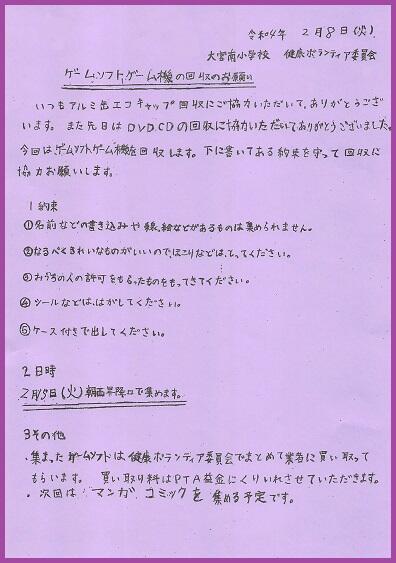 令和4年 2月8日(火)
大宮南小学校 健康ボランティア委員会
ゲームソフト,ゲーム機の回収のお願い
いつもアルミ缶エコキャップ回収にご協力いただいて,ありがとうござ
います。また先日はDVD,CDの回収に協力いただいてありがとうございました。
今回は,ゲームソフトゲーム機を回収します。下に書いてある約束を守って回収に
協力お願いします。
1約束
①名前などの書き込みや線、絵などがあるものは集められません。
②なるべくきれいなものがいいので,ほこりなどは,とってください。
③おうちの人の許可をもらったものをもってきてください。
④シールなどは、はがしてください。
⑤ケース付きで出してください。
2日時
2月15日(火)朝西昇降口で集めます。
3その他
・集まったゲームソフトは健康ボランティア委員会でまとめて業者に買い取って
もらいます。 買い取り料はPTA益金にくりいれさせていただきます。
・次回は マンガ コミックを 集める予定です。